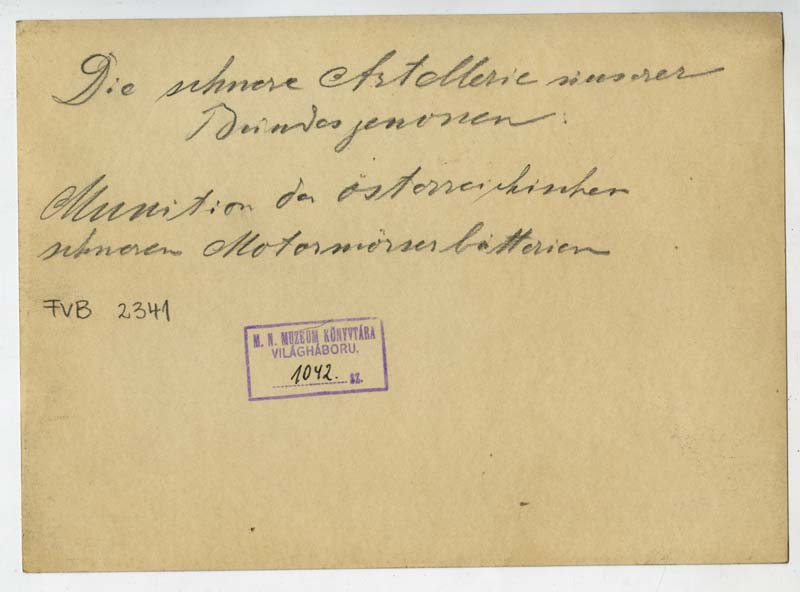 Die schwere Artellerie unserer
Bundesgenossen.
Munition der österreichischen
schweren Motormörserbatterien
FVB 2341
M. N. MUZEUM KÖNYVTÁRA
VILÁGHÁBORU.
1042. SZ.